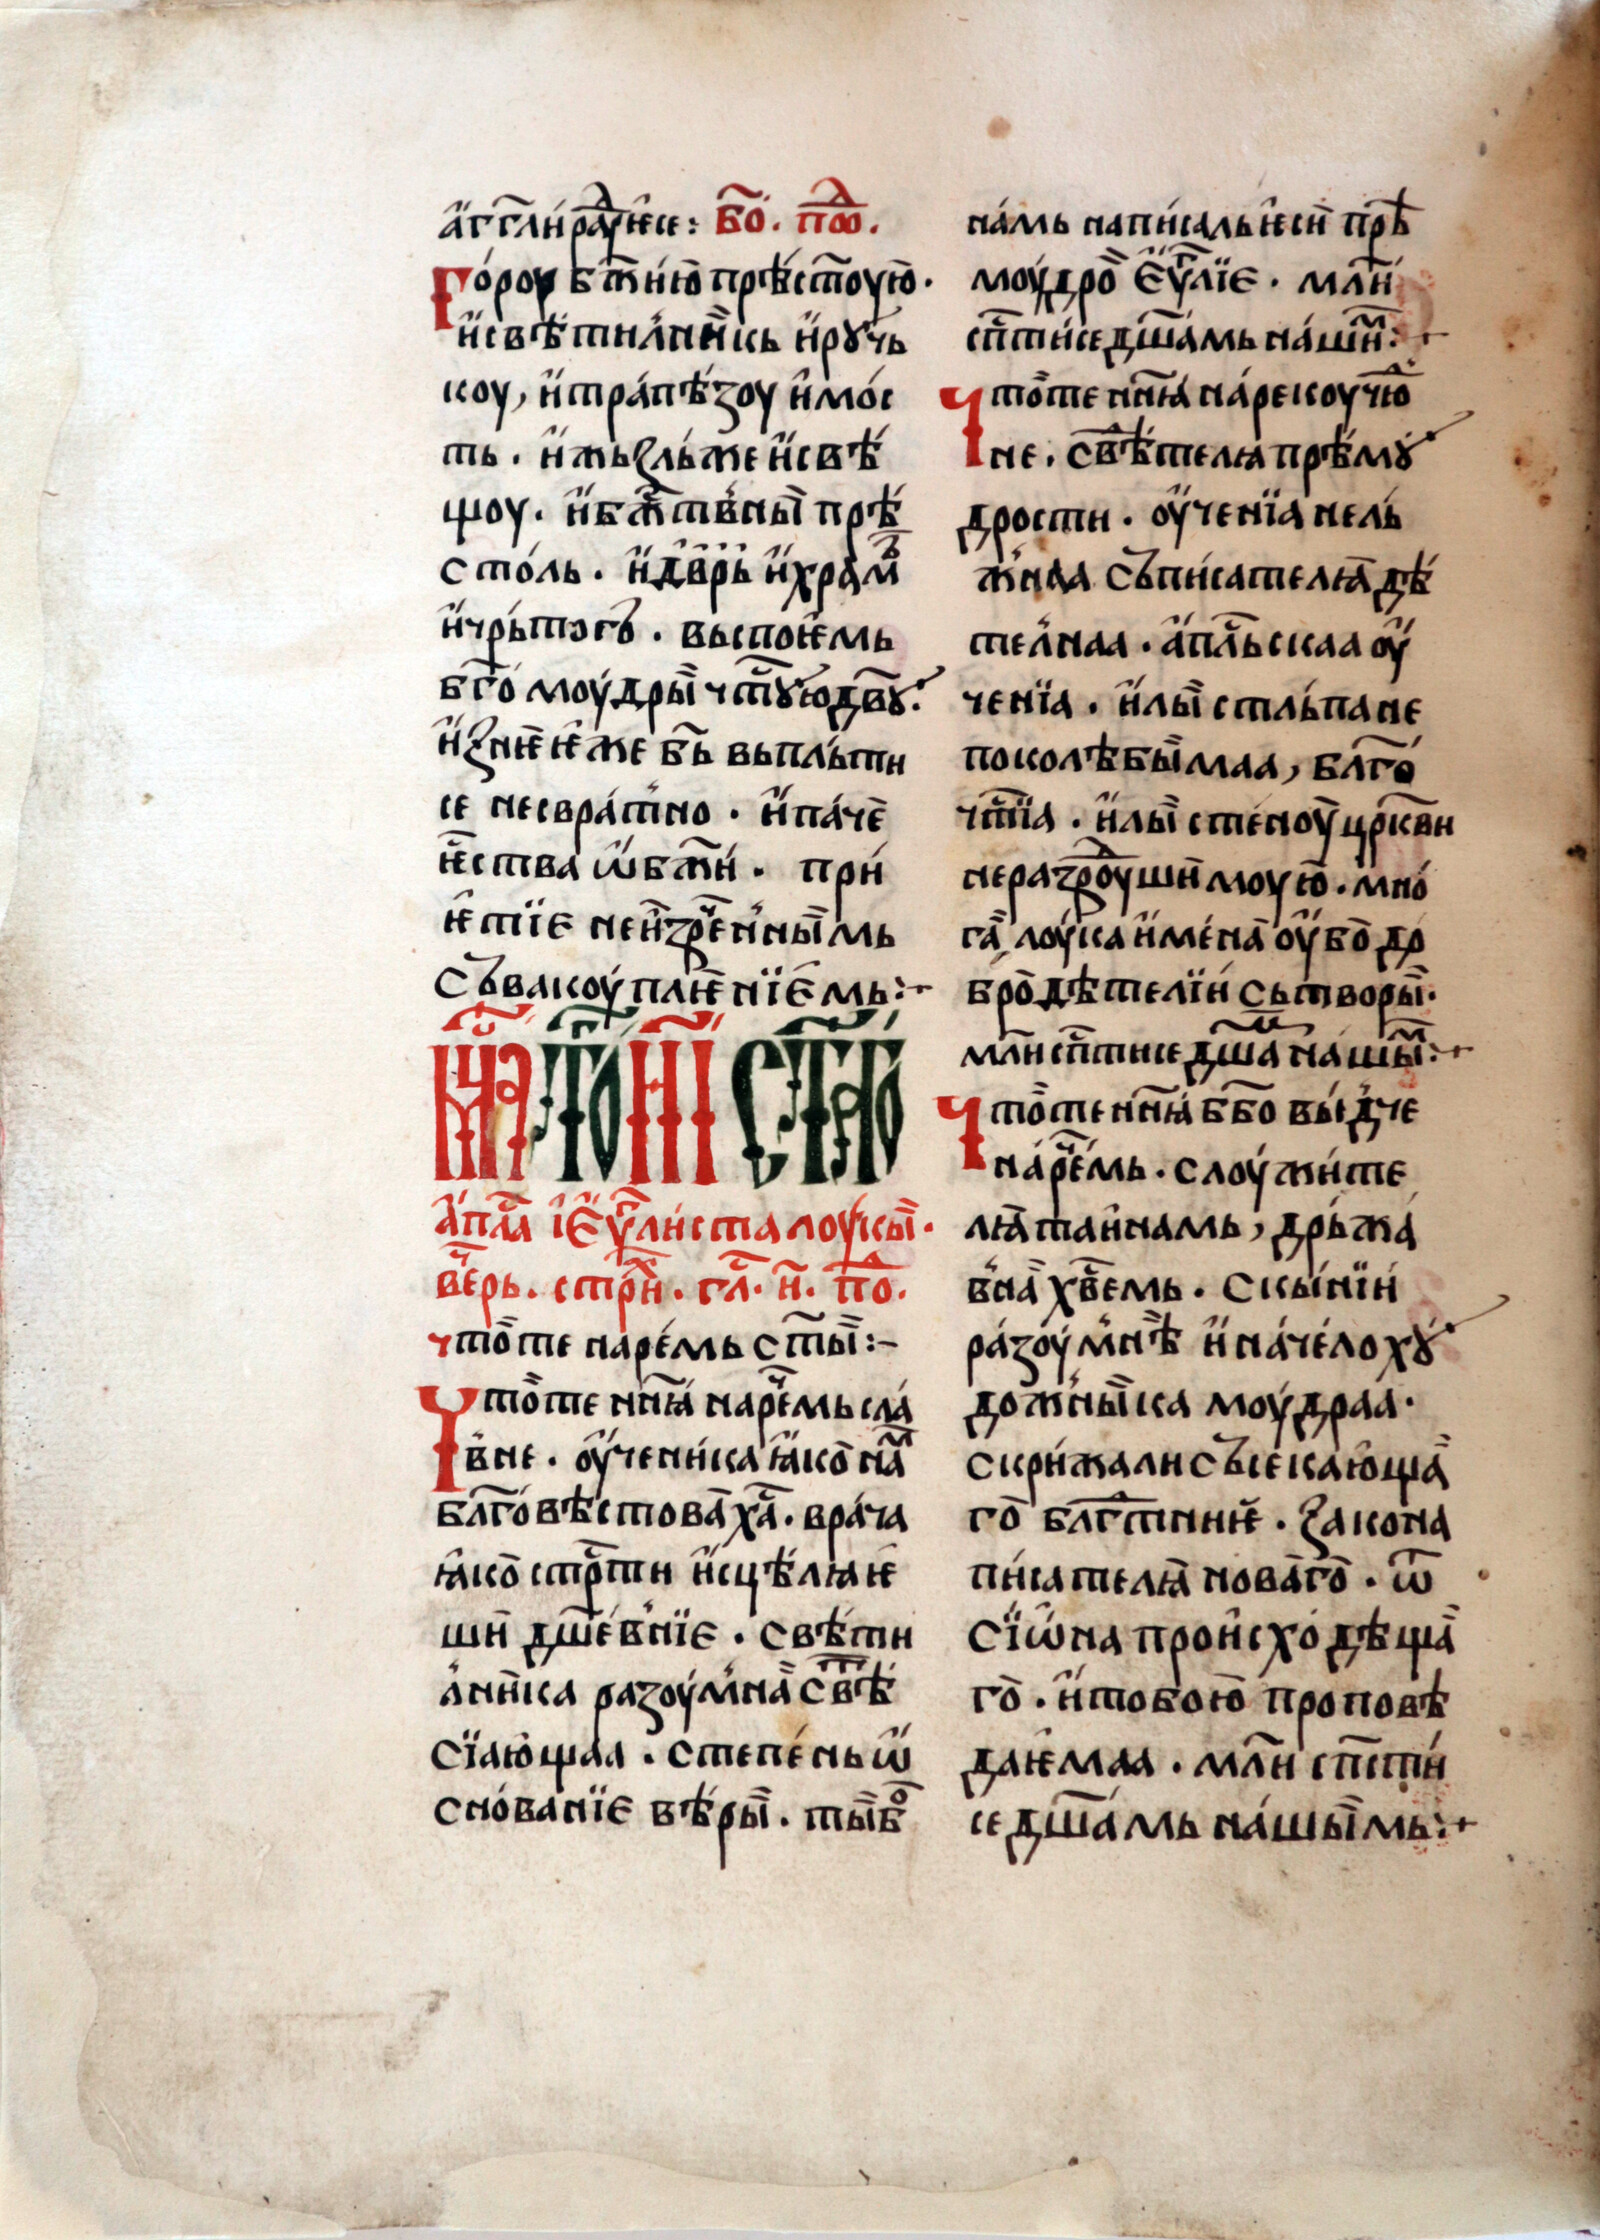 а҆гг҃лы́ ра́дꙋе҆тсе: бо҃. по҃д.
Го́роу бж҃їю прѣ́стоую.
и҆ свѣтилни́кь и҆ рꙋ́чь
коу, и҆ трапѣ́зоу и҆ мо́с
ть. и҆ жьзль́ же и҆ свѣ́
щоу. и҆ бж҃тве́ны прѣ́
сто́ль. и҆ две́рь и҆ хра́м
и҆ чрьто́гь. выспое҆мь
бг҃омоу́дры чⷭ҇тꙋю двꙋ҃.
и҆з нее҆ же бь҃ вьпль́ти
се несвра́тно. и҆ па́че
е҆ства ѡ҆бжи҃. при
е҆тїе неи҆зре́ченны́мь
съвакоупле́нїемь:
мца то́ н҃і ст҃го
а҆пⷭ҇ла і҆ е҆ѵⷢ҇листа лоукы́.
ве́черь. стрⷯи. гл҃. и҃. по҃.
что́ те наре́мь ст҃ы:
Что́ те нн҃ꙗ наре́чемь сла́
вне. оу҆чени́ка ꙗ҆ко на́м
блг҃овѣствова ха҃. врача
ꙗ҆ко стрⷭ҇ти и҆сцѣлꙗе҆
ши дш҃е́внїе. свѣти
лни́ка разоу́мна свѣ́т
сїаю҆щаа. степе́нь ѡ҆
снова́нїе вѣ́ры. ты́ бо
на́мь написаль е҆си прѣ
моу́дро е҆ѵⷢ҇лїе. мли҃
сп҃сти́се дш҃а́мь на́шим:
Что́ те нн҃ꙗ на́рекоу чю
не. свѣ́теля прѣ́мꙋ
дрости. оу҆ченїа нель́
жнаа съписателꙗ дѣ́
телнаа. а҆пⷭ҇льскаа оу҆
ченїа. и҆лы́ стль́па не
поколѣбы́маа, блг҃о
чⷭ҇тїа. и҆лы́ сте́ноу црк҃ви
неразроушимоую. мно́
га лоука и҆ме́на оу҆бо до
бродѣтелїи́ сьтворы́.
мли҃ сп҃стисе дш҃а́м на́шы́м:
Что́ те нн҃ꙗ бб҃о вы́дче
наре́чемь. слоужи́те
лꙗ таи҆намь, дрьжа́
вна хв҃е́мь. скы́нїи
разоу́мнѣ и҆ наче́ло хꙋ
до́жны́ка моу́драа.
скри́жали съсекаю҆ща
го блⷣг҃тние҆. закона
писателꙗ но́ваго. ѿ
Сїѡ҆на прои҆схо́дѣща
го. и҆ тобою проповѣ
дае҆маа. мли҃ сп҃сти́
се дш҃а́мь на́шы́мь: